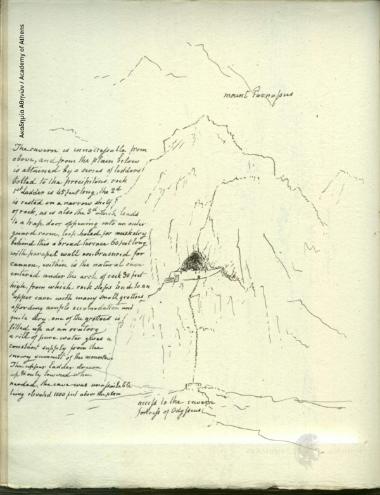 Ακαδημία Αθηνών / Academy of Athens
mount Parnassus
The cavern is unaccessable from
above, and from the plain below
is attained by a series of ladders
bolted to the precipitous rock
1st ladder is 45 feet long, the 2d
is rested on a narrow shelf
of rock, as is also the 3d which leads
to a trap door opening into an outer
guard room, loop holed for musketry
behind this a broad terrace 60 feet long
with parapet wall embrasured for
cannon, within is the natural cave
entered under the arch of rock 30 feet
high, from which rock steps lead to an
upper cave with many small grottoes
affording ample accomodation and
quite dry, one of the grottoes is
filled up as an oratory
a rill of pure water gives a
constant supply from the
snowy summit of the mountain
The upper ladder drawn
up & only lowered when
needed, the cave was unassailable
being elevated 1000 feet above the plain
access to the cavern
fortress of Odysseus